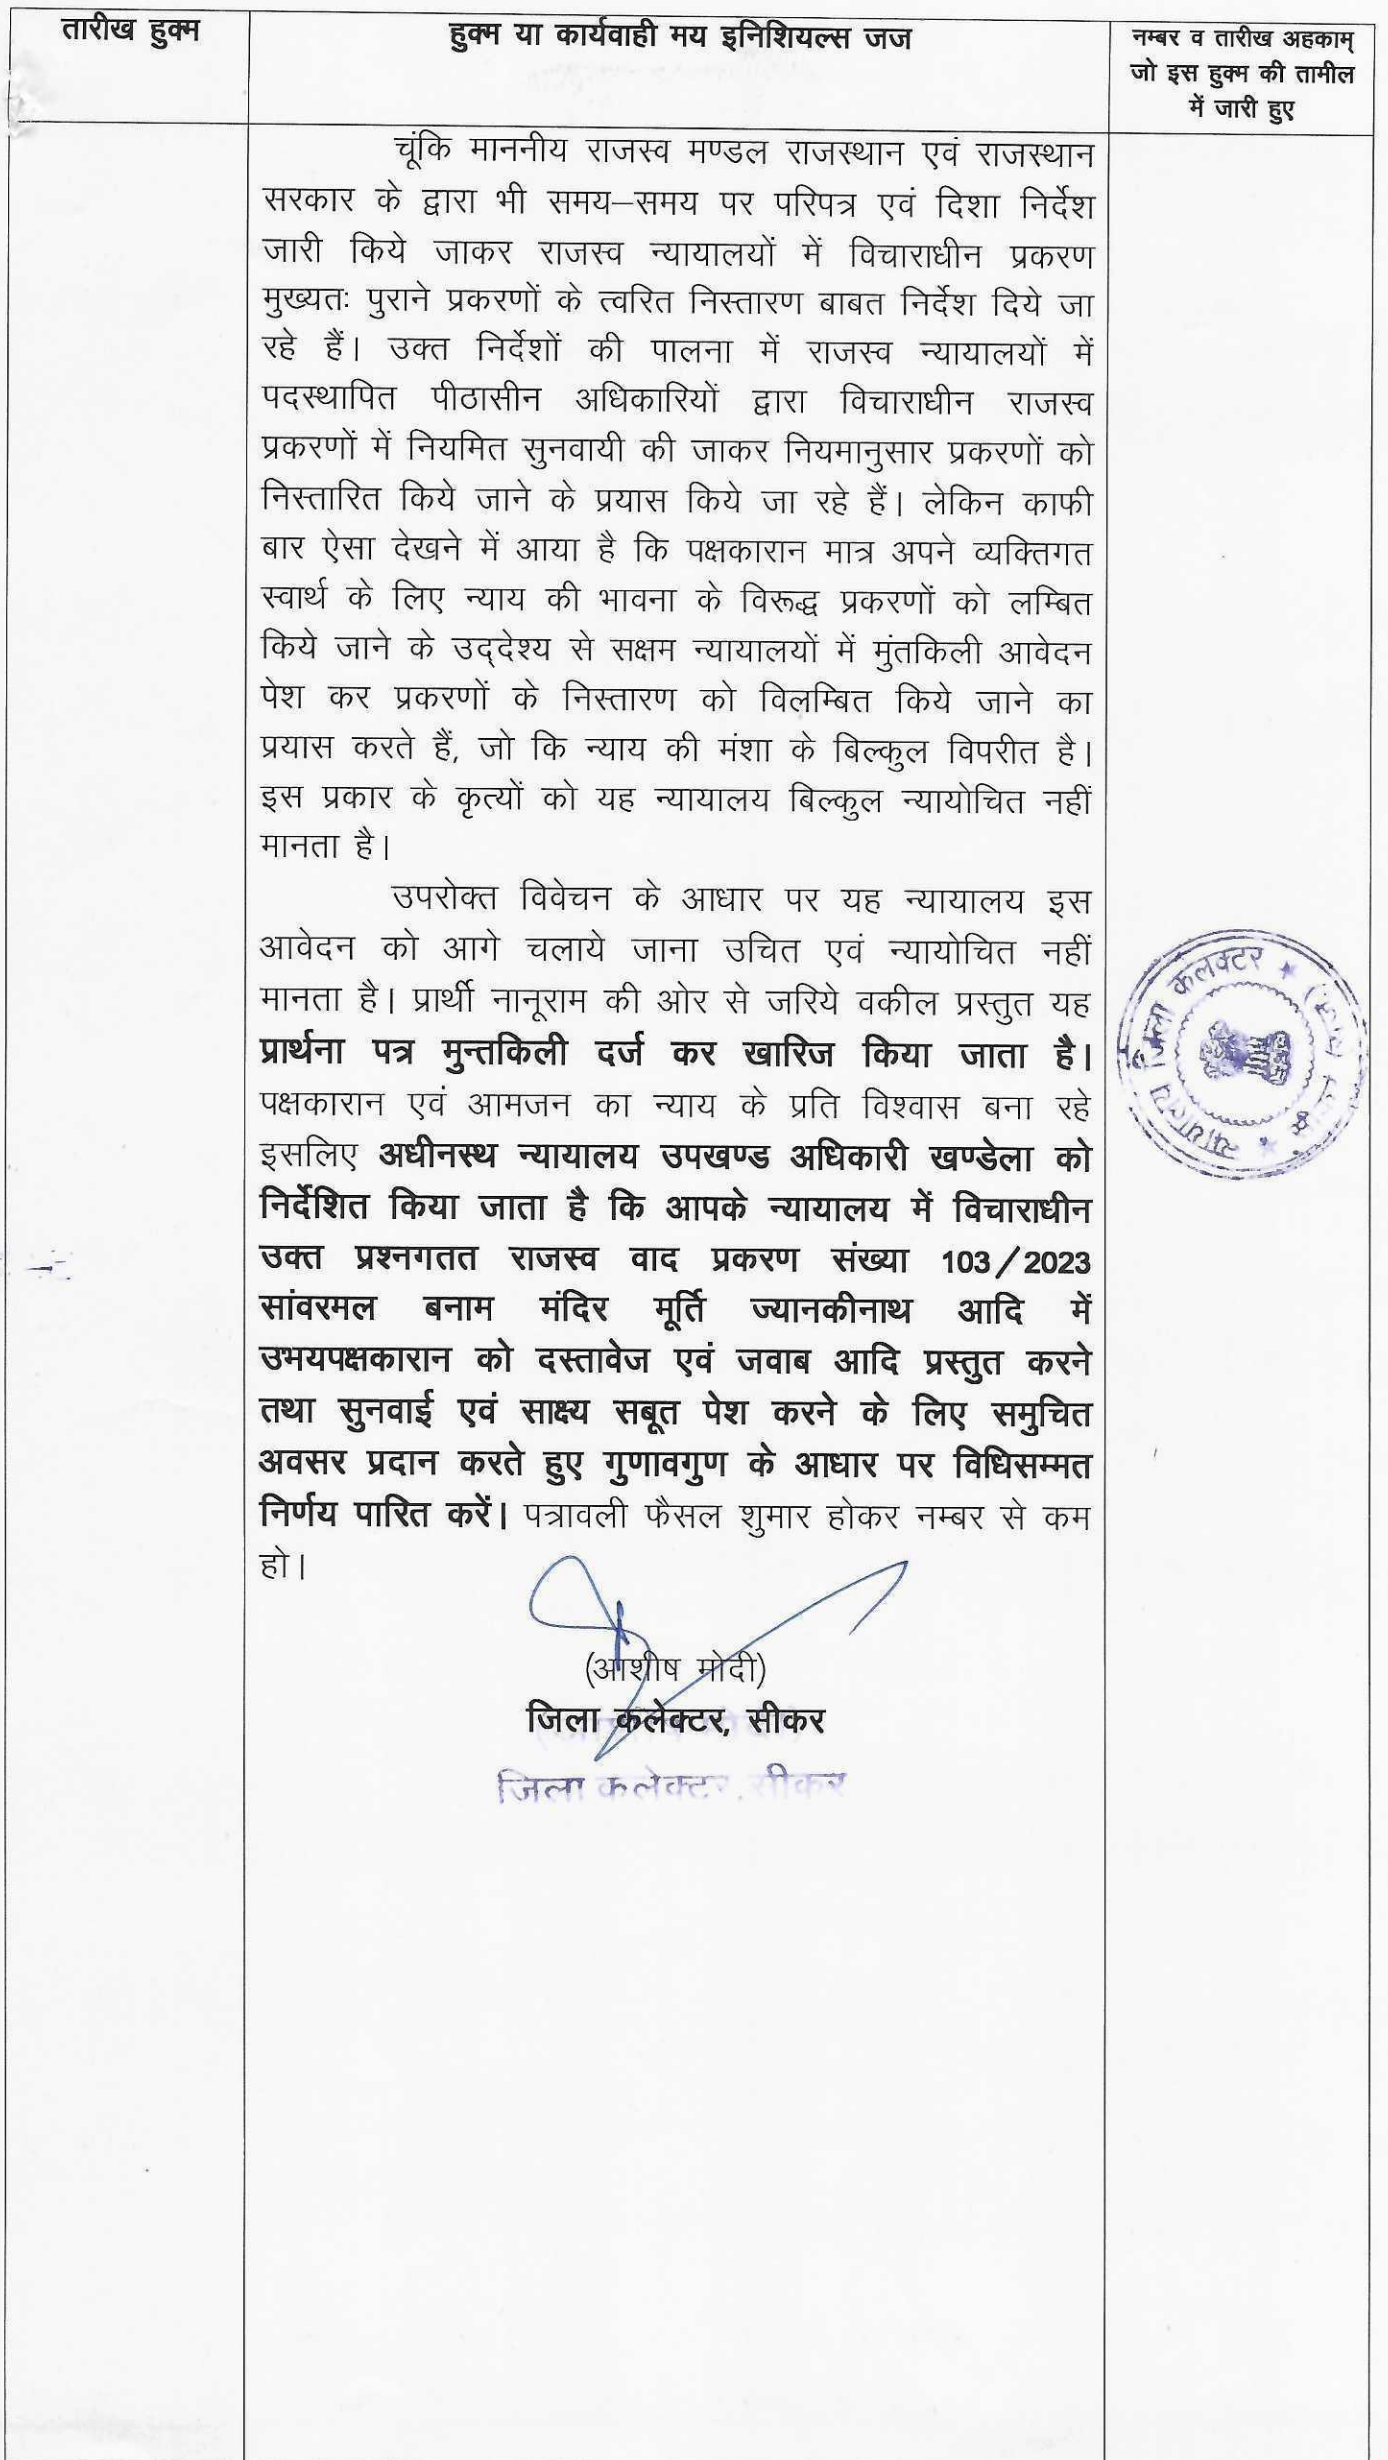 तारीख हुक्म
हुक्म या कार्यवाही मय इनिशियल्स जज
नम्बर व तारीख अहकाम्
जो इस हुक्म की तामील
में जारी हुए
चूंकि माननीय राजस्व मण्डल राजस्थान एवं राजस्थान
सरकार के द्वारा भी समय–समय पर परिपत्र एवं दिशा निर्देश
जारी किये जाकर राजस्व न्यायालयों में विचाराधीन प्रकरण
मुख्यतः पुराने प्रकरणों के त्वरित निस्तारण बाबत निर्देश दिये जा
रहे हैं। उक्त निर्देशों की पालना में राजस्व न्यायालयों में
पदस्थापित पीठासीन अधिकारियों द्वारा विचाराधीन राजस्व
प्रकरणों में नियमित सुनवायी की जाकर नियमानुसार प्रकरणों को
निस्तारित किये जाने के प्रयास किये जा रहे हैं। लेकिन काफी
बार ऐसा देखने में आया है कि पक्षकारान मात्र अपने व्यक्तिगत
स्वार्थ के लिए न्याय की भावना के विरूद्ध प्रकरणों को लम्बित
किये जाने के उद्‌देश्य से सक्षम न्यायालयों में मुंतकिली आवेदन
पेश कर प्रकरणों के निस्तारण को विलम्बित किये जाने का
प्रयास करते हैं, जो कि न्याय की मंशा के बिल्कुल विपरीत है।
इस प्रकार के कृत्यों को यह न्यायालय बिल्कुल न्यायोचित नहीं
मानता है।
उपरोक्त विवेचन के आधार पर यह न्यायालय इस
आवेदन को आगे चलाये जाना उचित एवं न्यायोचित नहीं
मानता है। प्रार्थी नानूराम की ओर से जरिये वकील प्रस्तुत यह
प्रार्थना पत्र मुन्तकिली दर्ज कर खारिज किया जाता है।
पक्षकारान एवं आमजन का न्याय के प्रति विश्वास बना रहे
इसलिए अधीनस्थ न्यायालय उपखण्ड अधिकारी खण्डेला को
निर्देशित किया जाता है कि आपके न्यायालय में विचाराधीन
उक्त प्रश्नगतत राजस्व वाद प्रकरण संख्या 103/2023
सांवरमल बनाम मंदिर मूर्ति ज्यानकीनाथ आदि में
उभयपक्षकारान को दस्तावेज एवं जवाब आदि प्रस्तुत करने
तथा सुनवाई एवं साक्ष्य सबूत पेश करने के लिए समुचित
अवसर प्रदान करते हुए गुणावगुण के आधार पर विधिसम्मत
निर्णय पारित करें। पत्रावली फैसल शुमार होकर नम्बर से कम
हो।
न्यायालय जिला कलक्टर
(आशीष मोदी)
जिला कलेक्टर, सीकर
जिला कलेक्टर, सीकर